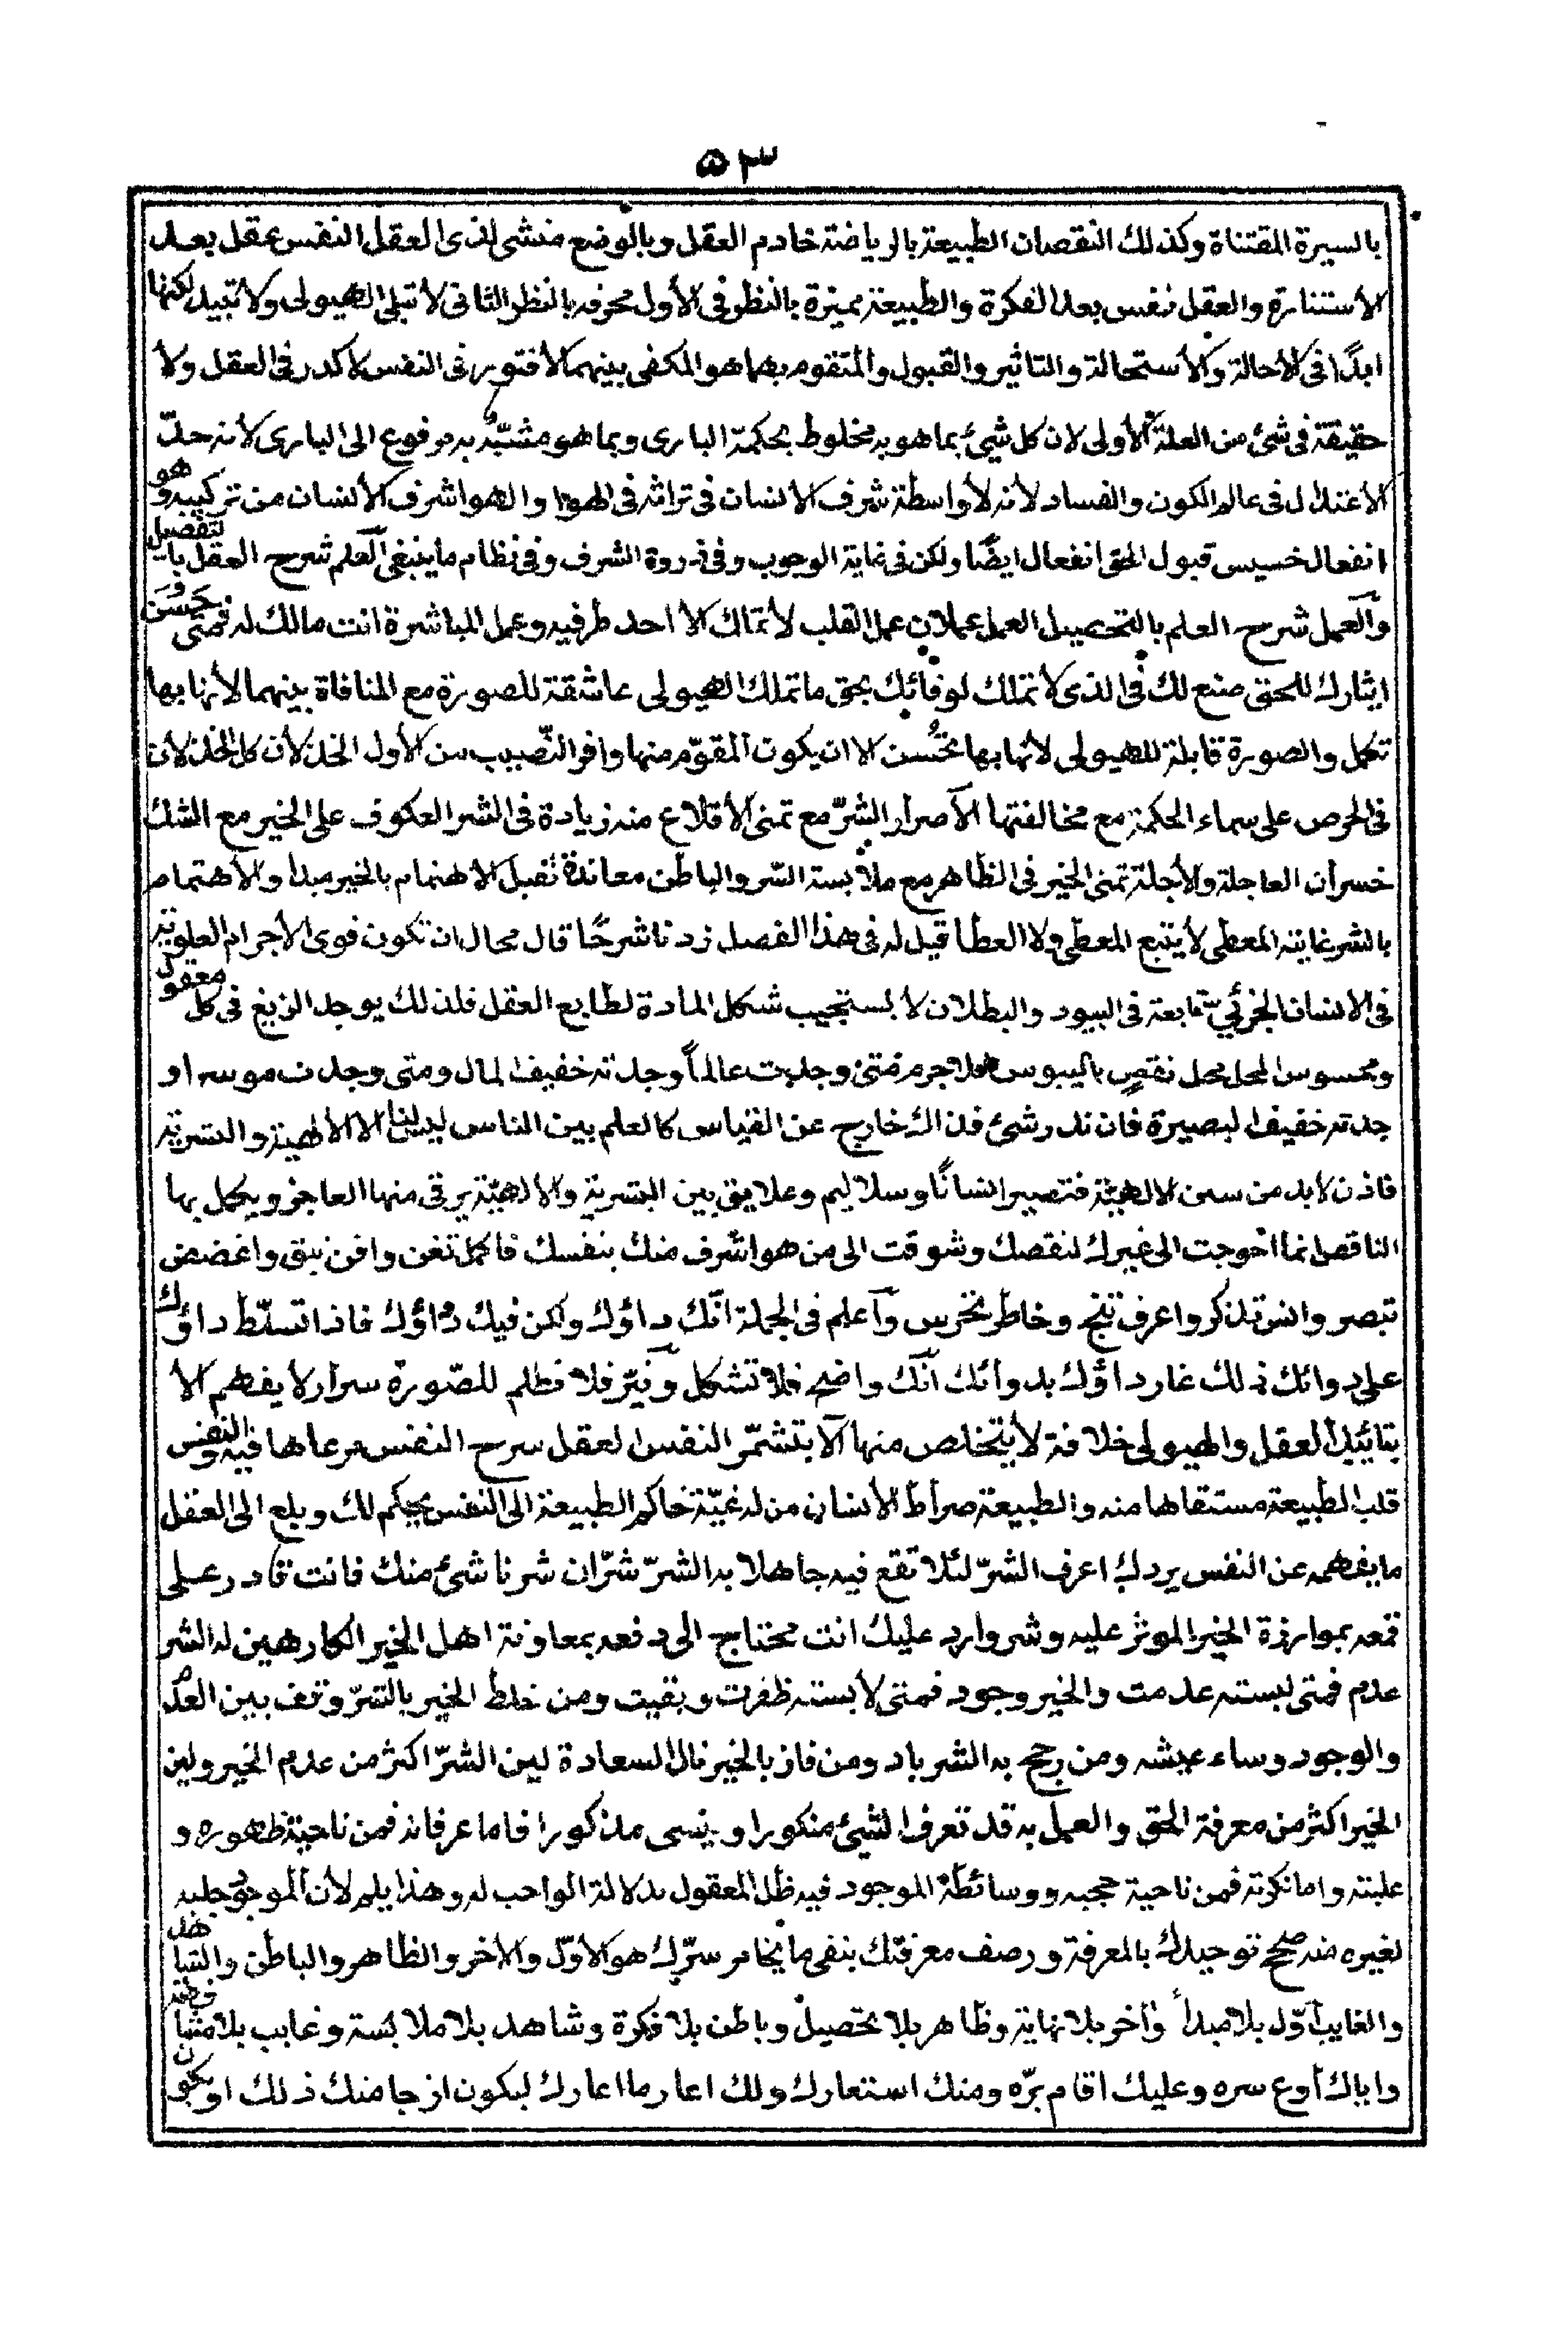 ٥٣
بالسيرة المقتناة وكذلك النقصان الطبيعة بالرياضة خادم العقل وبالوضع منشى لذى العقل النفس عقل بعد
الاستنارة والعقل نفس بعد الفكرة والطبيعة مميزة بالنظر فى الأول محرفه بالنظر الثانى لا تبلى الهيولى ولا تبيد لكنها
ابدًا فى الاحالة والاستحالة والتاثير والقبول والمتقوم بهما هو المكفى بينهما لا فتور فى النفس لا كدر فى العقل ولا
حقيقة فى شئ من العلة الأولى لان كل شيئ بما هو به مخلوط بحكمة البارى وبما هو مشبّه به مرفوع الى البارى لانه حدّ
الاعتدال فى عالم الكون والفساد لانه لا واسطة شرف الانسان فى تراثه فى الهوا والهوا شرف الأنسان من تركيبه وهو
انفعال خسيس قبول الحق انفعال ايضًا ولكن فى نهاية الوجوب وفى ذروة الشرف وفى نظام ما ينبغى العلم شرح العقل بالتفصيل
والعمل شرح العلم بالتحصيل العمل عملان عمل القلب لا تملك الا احد طرفيه وعمل المباشرة انت مالك له فمتى حسن
ايثارك للحق صنع لك فى الذى لا تملك لوفائك بحق ما تملك الهيولى عاشقة للصورة مع المنافاة بينهما لأنها بها
تكمل والصورة قابلة للهيولى لأنها بها تحسُن الا ان يكون المقوّم منها وافر النّصيب من الأول
فى الحرص على سماء الحكمة مع مخالفتها الاصرار الشرّ مع تمنى الأقلاع منه زيادة فى الشر العكوف على الخير مع الشك
خسران العاجلة والأجلة تمنى الخير فى الظاهر مع ملابسة الشر والباطن معاندة تقبل الاهتمام بالخير مبدأ والأهتمام
بالشر غايته المعطى لا يتبع المعطى ولا العطا قيل له فى هذا الفصل زدنا شرحًا قال محال ان تكون قوى الأجرام العلوية
فى الانسان الجزئي تابعة فى البيود والبطلان لا يستجيب شكل المادة لطابع العقل فلذلك يوجد الزيغ فى كل معقول
ومحسوس المحل محل نقصٍ باليبوس فلا جرم متى وجدت عالماً وجدته خفيف المال ومتى وجدت موسرا و
جدته خفيف البصيرة فان ندر شئ فذاك خارج عن القياس كالعلم بين الناس ليس لنا الا الالهية والبشرية
فاذن لا بد من سنن الالهيّة فتصير انسانًا وسلاليم وعلايق بين البشرية والالهيّة يرقى منها العاجز ويكمل بها
الناقص انما احوجت الى غيرك لنقصك وشوقت الى من هو اشرف منك بنفسك فاكمل تغن وافن تبق واغضض
تبصر وانس تذكر واعرف تنج وخاطر تحرس واعلم فى الجملة انّك داؤك ولكن فيك دواؤك فاذا تسلّط داؤك
على دوائك ذلك غار داؤك بدوائك انّك واضح فلا تشكل ونيّر فلا تظلم للصّورة سرار لا يفهم الا
بتائيد العقل والهيولى خلافة لا يتخلص منها الا بتشمّر النفس العقل سرح النفس مرعاها فيه والنفس
قلب الطبيعة مستقاها منه والطبيعة صراط الأنسان من له غيّة حاكم الطبيعة الى النفس يحكم لك وبلغ الى العقل
ما يفهمه عن النفس يردك اعرف الشرّ لئلا تقع فيه جاهلا به الشرّ شرّان شر ناشئ منك فانت قادر على
قمعه بموارزة الخير الموثر عليه وشر وارد عليك انت محتاج الى دفعه بمعاونة اهل الخير الكارهين له الشر
عدم فمتى لبسته عدمت والخير وجود فمتى لابسته ظفرت وبقيت ومن خلط الخير بالشرّ وقف بين العدم
والوجود وساء عيشه ومن رجح به الشر باد ومن فاز بالخير نال السعادة ليس الشرّ اكثر من عدم الخير وليس
الخير اكثر من معرفة الحق والعمل به قد تعرف الشيئ منكورا وينسى مذكورا فاما عرفانه فمن ناحية ظهوره و
علبته واما نكرته فمن ناحية حجبه ووسائطه الموجود فيه ظل المعقول بدلالة الواجب له وهذا يلم لأن الموجود جلبه
لغيره منه صحح توحيدك بالمعرفة ورصف معرفتك بنفى ما يخامر سرّك هو الاوّل والأخر والظاهر والباطن والشاهد
والغايب اوّل بلا مبدأ وأخر بلا نهاية وظاهر بلا تحصيل وباطن بلا فكرة وشاهد بلا ملابسة وغايب بلا
واياك أوع سره وعليك اقام برّه ومنك استعارك ولك اعار ما اعارك ليكون ازجا منك ذلك او يكون